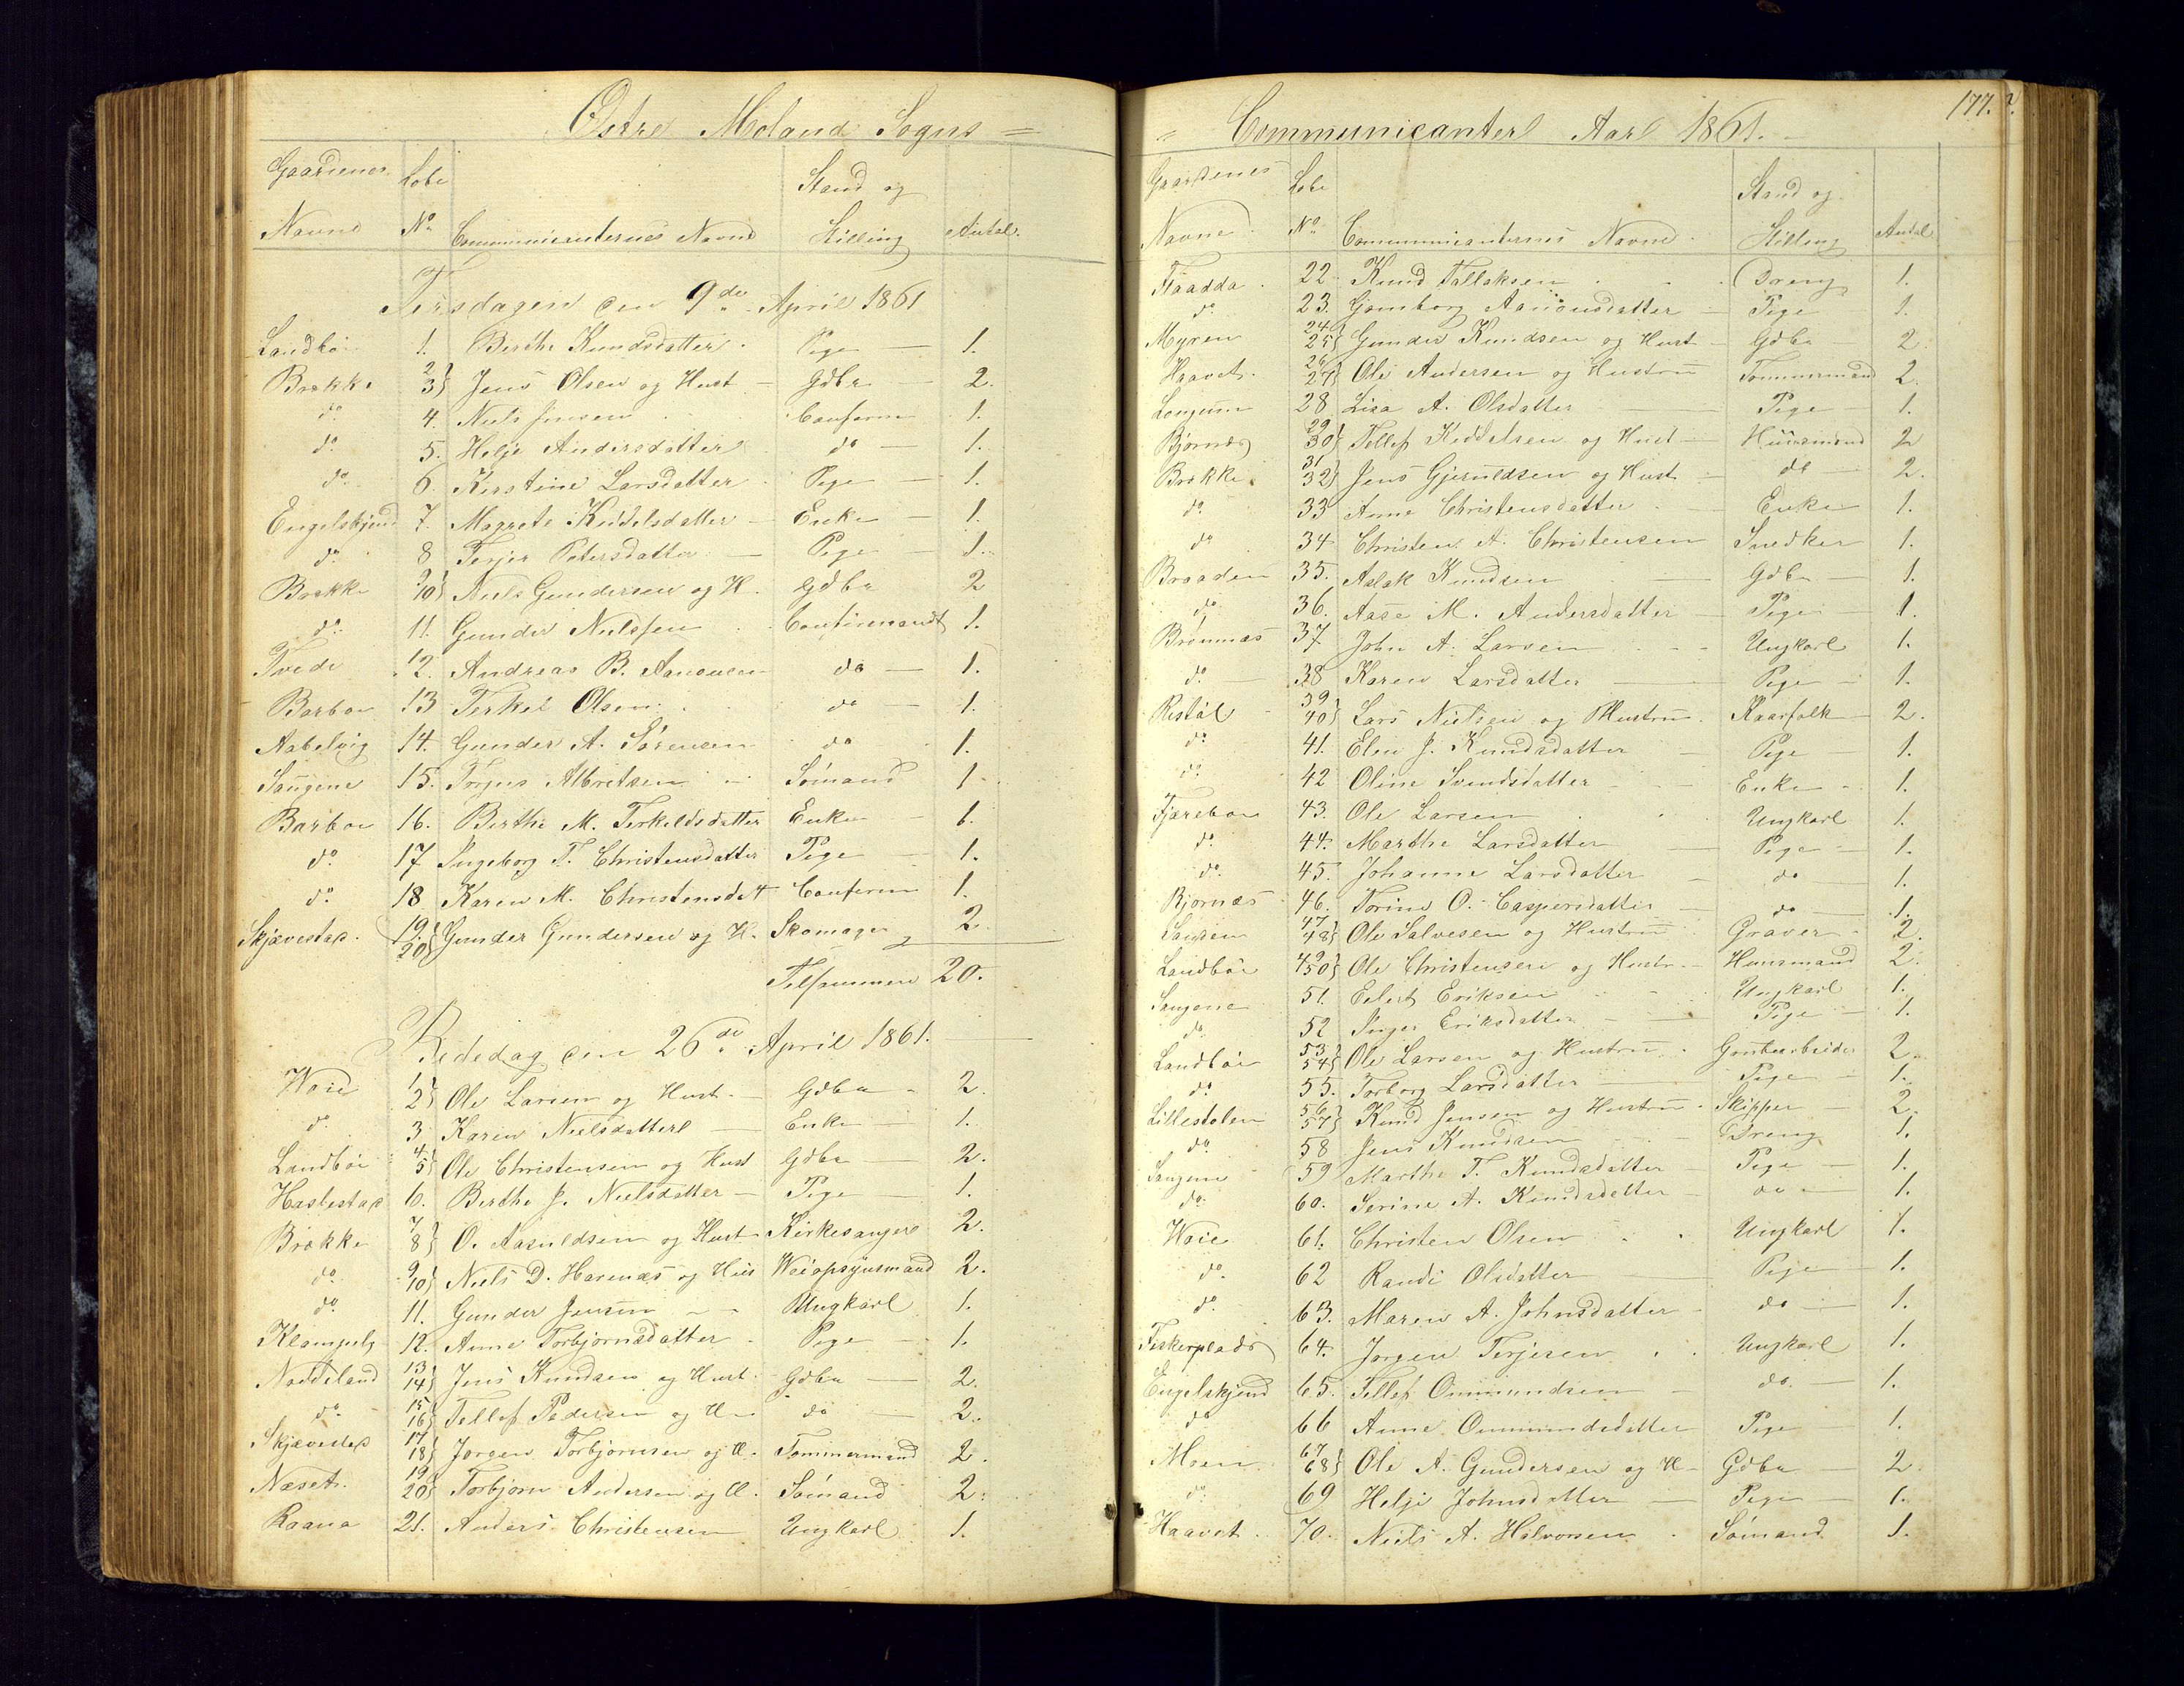 Østre Moland Sogns =
Gaardenes Løbe Stand og
Navne No Communicanternes Navne Stilling Antal.
Tirsdagen den 9de April 1861
Landbøe 1. Berthe Knudsdatter Pige 1.
Brekke 2 3 Jens Olsen og Hust Gdbr 2.
do 4. Niels Jensen Conferm 1.
do 5. Helje Andersdatter do 1.
do 6. Kirstine Larsdatter Pige 1.
Engelskjend 7. Magrete Kiddelsdatter Enke 1.
do 8 Terjer Petersdatter Pige 1.
Brekke 9 10 Niels Gundersen og H. Gdbr 2
do 11. Gunder Nielsen Confirmandt 1.
Tvede 12. Andreas B. Aanonsen do 1.
Barboe 13 Terkel Olsen do 1.
Aabelvig 14. Gunder A. Sørensen do 1.
Saugene 15. Torjus Albretsen Sömand 1
Barboe 16. Berthe M. Terkeldsdatter Enke 1.
do 17 Ingeborg T. Christensdatter Pige 1.
do 18 Karen M. Christensdat Conferm 1.
Skjævestad. 19. 20 Gunder Gundersen og H. Skomager 2
Tilsammen 20.
Bededag den 26de April 1861.
Woie 1 2 Ole Larsen og Hust. Gdbr 2.
do 3 Karen Nielsdatter Enke 1.
Landbøe 4 5 Ole Christensen og Hust Gdbr 2.
Haslestad 6. Berthe J. Nielsdatter Pige 1.
Brekke 7 8 O. Aasuldsen og Hust Kirkesanger 2.
do 9 10 Niels D. Harenæs og Hus Weiopsynsmand 2.
do 11. Gunder Jensen Ungkarl 1.
12. Anne Torbjørnsdatter Pige 1.
Nødeland 13 14 Jens Knudsen og Hust. Gdbr 2.
do 15 16 Tellef Pedersen og H do 2.
Skjævestad 17 18 Jørgen Torbjørnsen og H. Tømmermand 2.
Næset. 19 20 Torbjørn Andersen og H. Sömand 2.
Raana 21. Anders Christensen Ungkarl 1.
177.
= Communicanter Aar 1861.
Gaardenes Løbe Stand og
Navne No Communicanternes Navne Stilling Antal
Flaadda 22 Knud Tallaksen Dreng 1.
do 23. Gjomborg Aanonsdatter Pige 1.
Myren 24 25 Gunder Knudsen og Hust Gdbr 2.
Haavet. 26 27 Ole Andersen og Hustru Tømmermand 2.
Longum 28 Lisa A. Olsdatter Pige 1.
Bjørnæs 29 30 Tellef Kiddelsen og Hust Huusmand 2
Brekke 31 32 Jens Gjeruldsen og Hust do 2.
do 33 Anne Christensdatter Enke 1.
do 34 Christen A. Christensen Snedker 1.
Braaden 35. Aslak Knudsen Gdbr 1.
do 36. Aase M. Andersdatter Pige 1.
Brønnæs 37 John A. Larsen Ungkarl 1.
do 38 Karen Larsdatter Pige 1.
Ristøl 39 40 Lars Nielsen og Hustru Kaarfolk 2.
do 41. Elen J. Knudsdatter Pige 1.
do 42 Oline Svendsdatter Enke 1.
Fjæreboe 43. Ole Larsen Ungkarl 1.
do 44. Marthe Larsdatter Pige 1.
do. 45. Johanne Larsdatter do 1.
Bjørnæs 46. Torine O. Caspersdatter do 1.
47 48 Ole Salvesen og Hustru Graver 2.
Landbøe 49 50 Ole Christensen og Hustr. Huusmand 2.
Saugene 51. Eilert Eriksen Ungkarl 1.
do 52 Inger Eriksdatter Pige 1.
Landbøe 53 54 Ole Larsen og Hustru Grubearbeider 2.
do. 55. Torborg Larsdatter Pige 1.
Lillestølen 56 57 Knud Jensen og Hustru Skipper 2.
do. 58 Jens Knudsen Dreng 1.
Saugene 59 Marthe T. Knudsdatter Pige 1.
do 60. Serine A. Knudsdatter do 1.
Woie 61. Christen Olsen Ungkarl 1.
do. 62 Randi Olsdatter Pige 1.
do. 63. Maren A. Johnsdatter do 1.
Fiskerplads 64. Jørgen Terjesen Ungkarl 1.
Engelskjend 65. Tellef Ommundsen do. 1.
do 66 Anne Ommundsdatter Pige 1.
Moen 67 68 Ole A. Gundersen og H Gdbr 2
do. 69 Helje Johnsdatter Pige 1.
Haavet. 70. Niels A. Halvorsen Sömand 1.